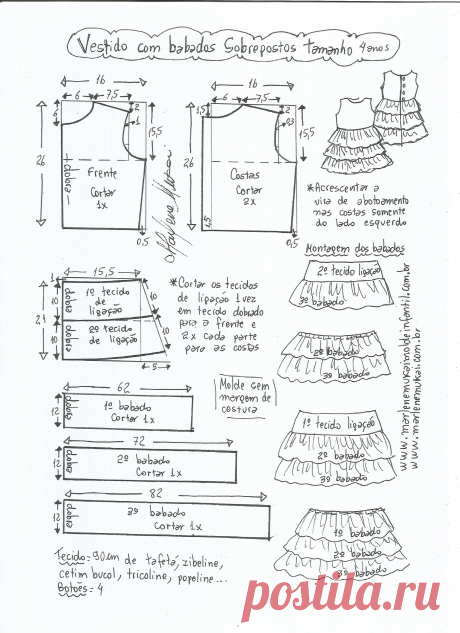 Vestido com babados Sobrepostos tamanho 4 anos
16
6
7,5
6
2
1
15,5
26
dobra
Frente
Cortar
1x
0,5
Marlene Mukai
16
6
7,5
1,5
2
15,5
26
Costas
Cortar
2x
1,5
0,5
*Acrescentar a
vira de abotoamento
nas costas somente
do lado esquerdo
Montagem dos babados
1
15,5
10
dobra
1º tecido
de
ligação
10
21
10
dobra
2º tecido
de ligação
10
5
*Cortar os tecidos
de ligação 1 vez
em tecido dobrado
para a frente e
2x cada parte
para as costas
2º tecido ligação
3º babado
2º babado
3º babado
62
12
dobra
1º babado
Cortar 1x
Molde sem
margem de
costura
72
12
dobra
2º babado
Cortar 1x
82
12
dobra
3º babado
Cortar 1x
1º tecido ligação
2º babado
3º babado
1º babado
2º babado
3º babado
www.marlenemukaimoldeinfantil.com.br
www.marlenemukai.com.br
Tecido=90cm de tafetá, zibeline,
cetim bucol, tricoline, popeline...
Botões=4
postila.ru